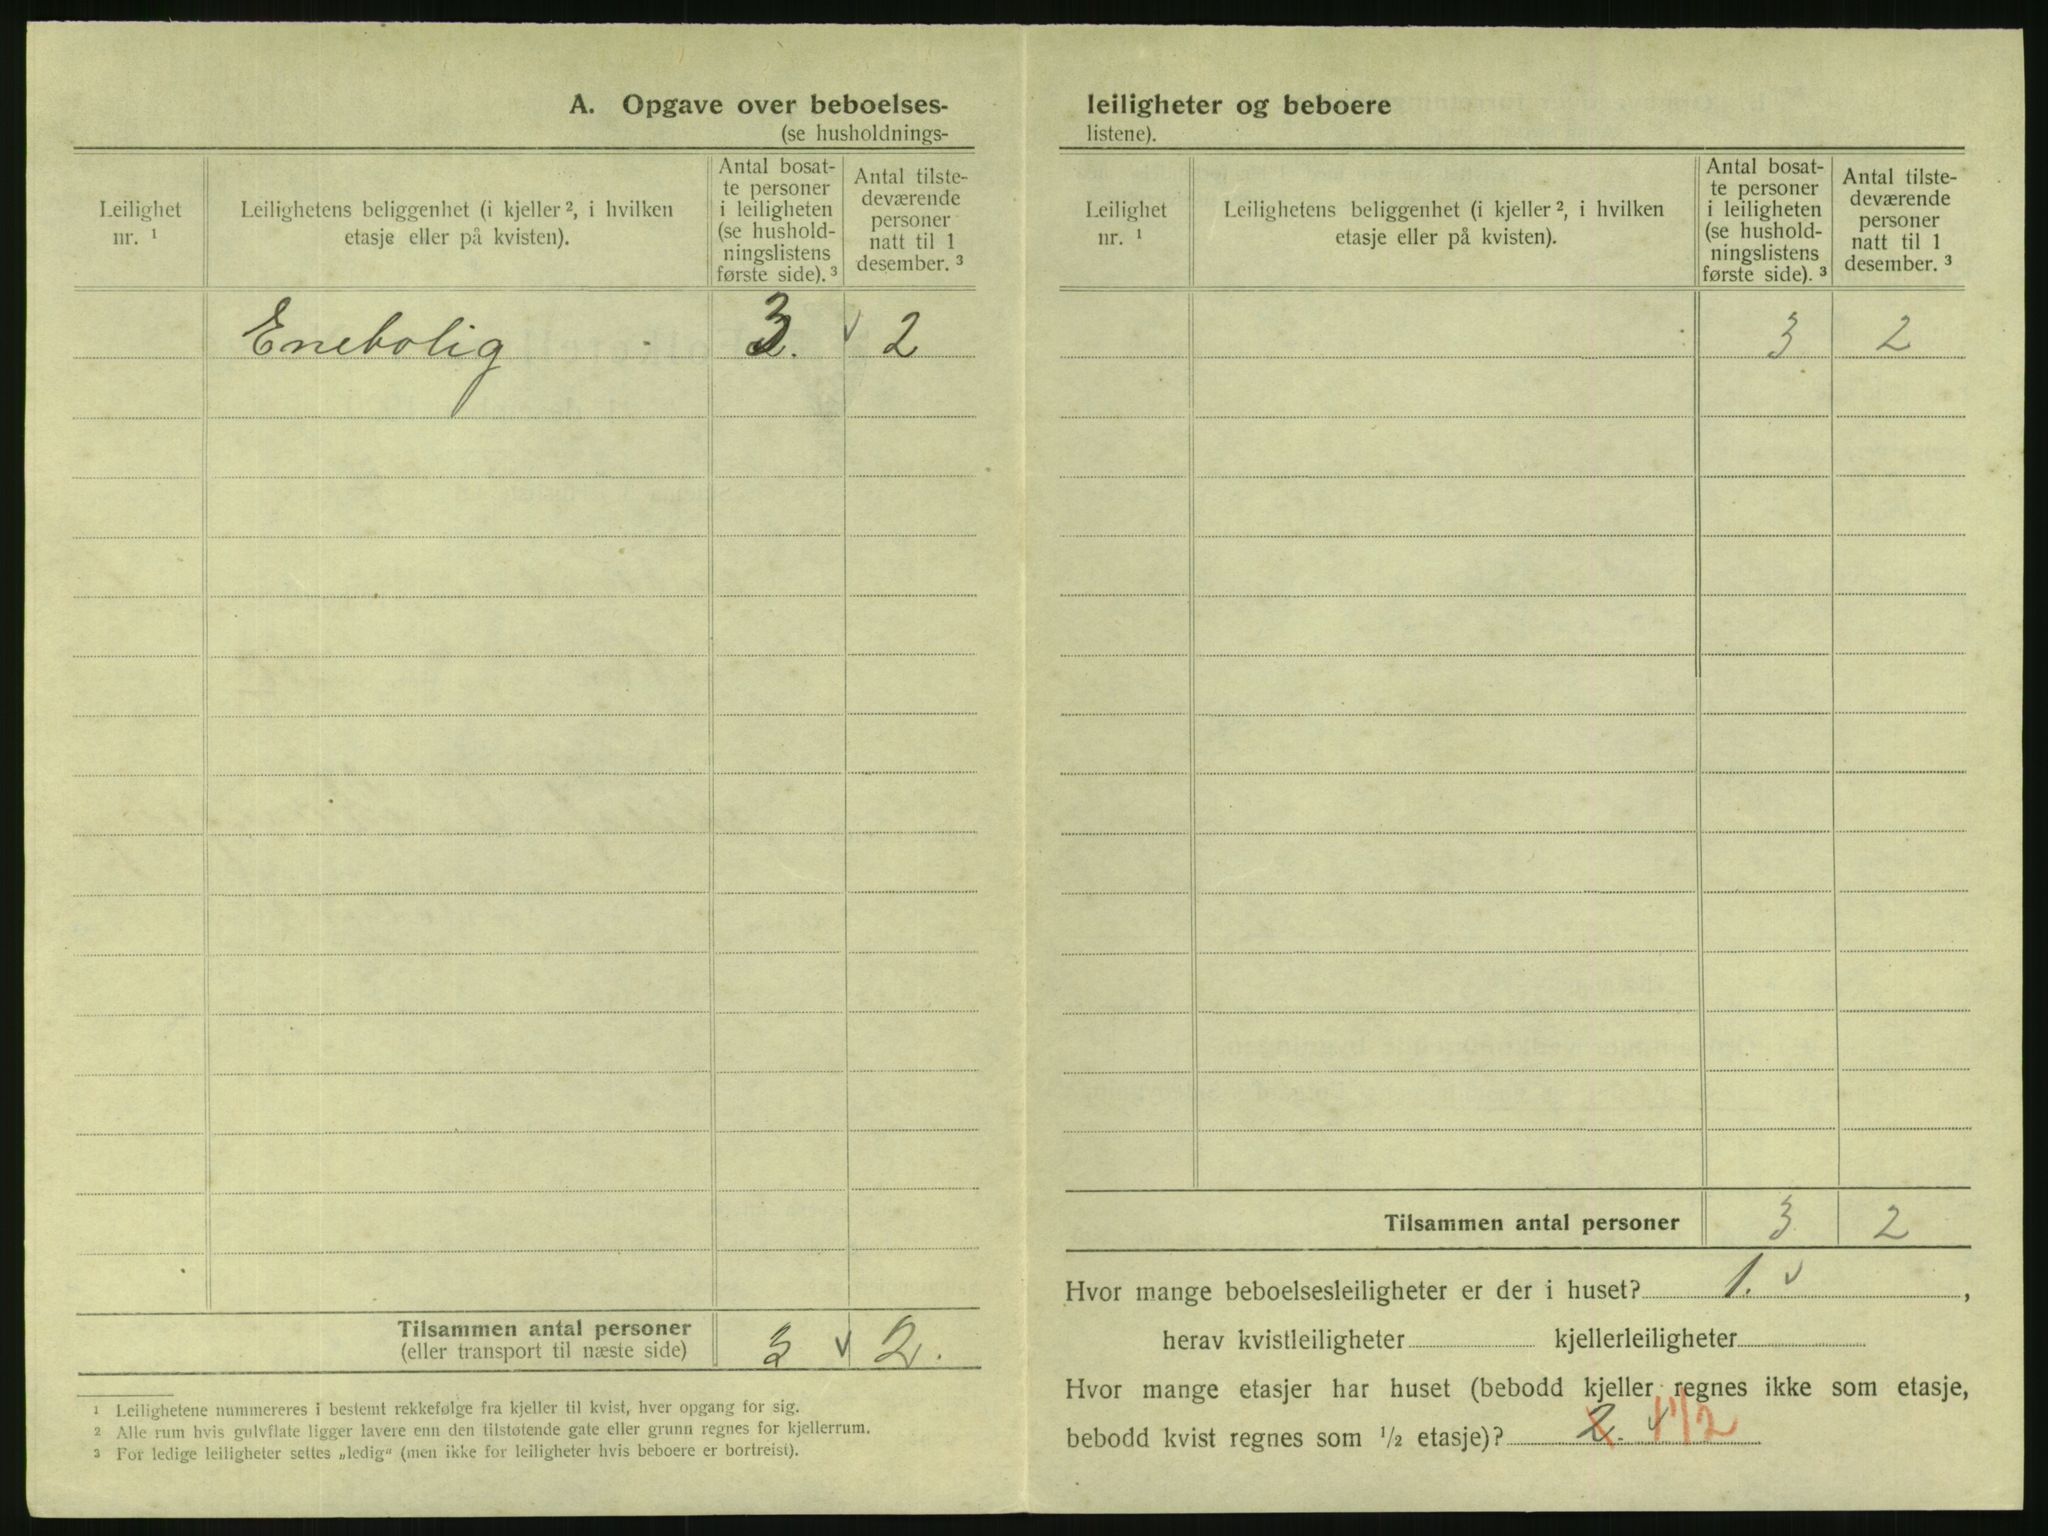 A. Opgave over beboelses-
(se husholdnings-
Leilighet
nr. 1
Leilighetens beliggenhet (i kjeller 2, i hvilken
etasje eller på kvisten).
Antal bosat-
te personer
i leiligheten
(se hushold-
ningslistens
første side). 3
Antal tilste-
deværende
personer
natt til 1
desember. 3
Enebolig 3. v 2
Tilsammen antal personer
(eller transport til næste side)
3 v 2.
1 Leilighetene nummereres i bestemt rekkefølge fra kjeller til kvist, hver opgang for sig.
2 Alle rum hvis gulvflate ligger lavere enn den tilstøtende gate eller grunn regnes for kjellerrum.
3 For ledige leiligheter settes „ledig“ (men ikke for leiligheter hvis beboere er bortreist).
leiligheter og beboere
listene).
Leilighet
nr. 1
Leilighetens beliggenhet (i kjeller 2, i hvilken
etasje eller på kvisten).
Antal bosat-
te personer
i leiligheten
(se hushold-
ningslistens
første side). 3
Antal tilste-
deværende
personer
natt til 1
desember. 3
3 2
Tilsammen antal personer 3 2
Hvor mange beboelsesleiligheter er der i huset? 1. v ,
herav kvistleiligheter kjellerleiligheter
Hvor mange etasjer har huset (bebodd kjeller regnes ikke som etasje,
bebodd kvist regnes som 1/2 etasje)? 2. v 1 1/2